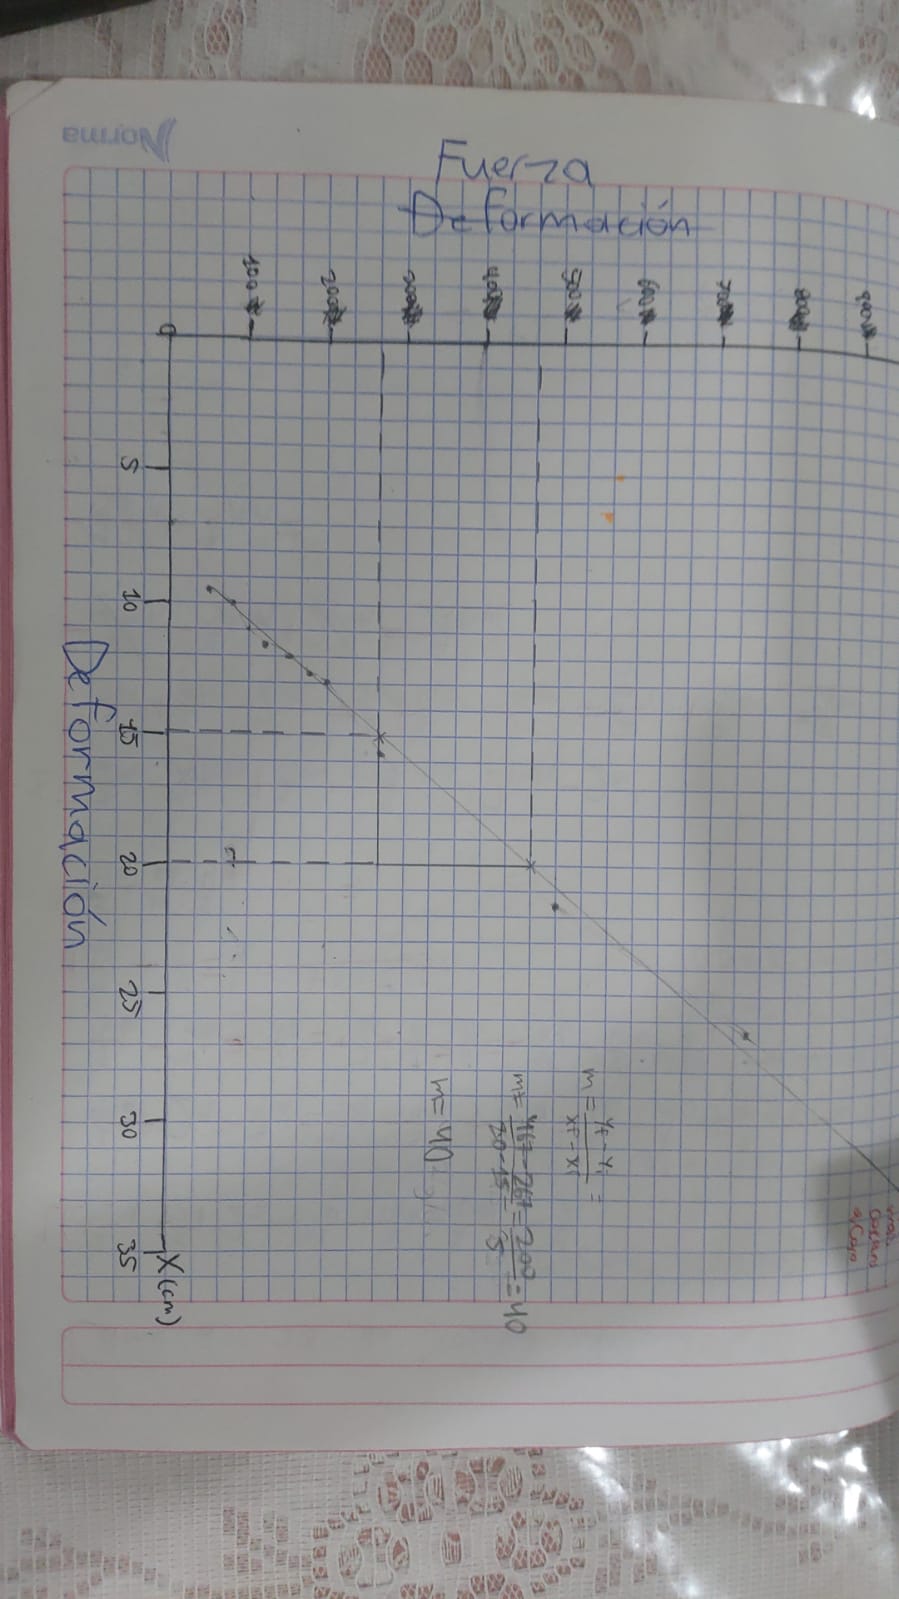 Norma
Fuerza
Deformación
100
200
300
400
500
600
700
800
900
0
5
10
15
20
25
30
35
X(cm)
Deformación
m = yf - yi / xf - xi =
m = 467 - 267 / 20 - 15 = 200 / 5 = 40
m = 40